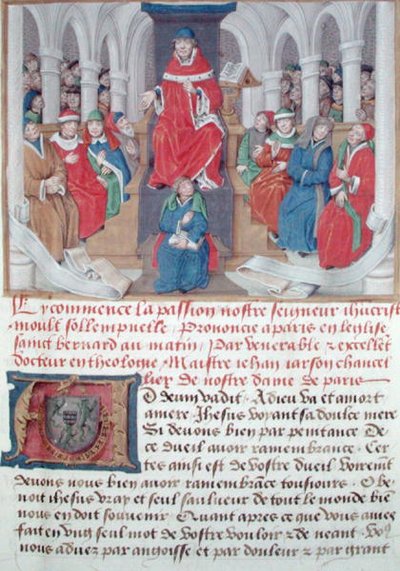 Cy commence la passion nostre seigneur ihucrist
moult sollempnelle, Prononcie a paris en leglise
sainct bernard au matin, Par venerable & excellet
docteur en theologie, Maistre iehan iarson chancel
lier de nostre dame de paris
D deum vadit. Adieu va et a mort
amere. Ihesus voyant sa doulce mere
Si devons bien par penitance De
ce dueil avoir ramembrance. Cer
tes ainsi est de vostre dueil
devons nous bien avoir ramembrance tousiours. O be
noit ihesus vray et seul saulveur de tout le monde bie
nous en doit souvenir. Quant apres ce que vous aviez
fait en ung seul mot de vostre vouloir & de neant.
nous advez par angoisse et par douleur & par grant